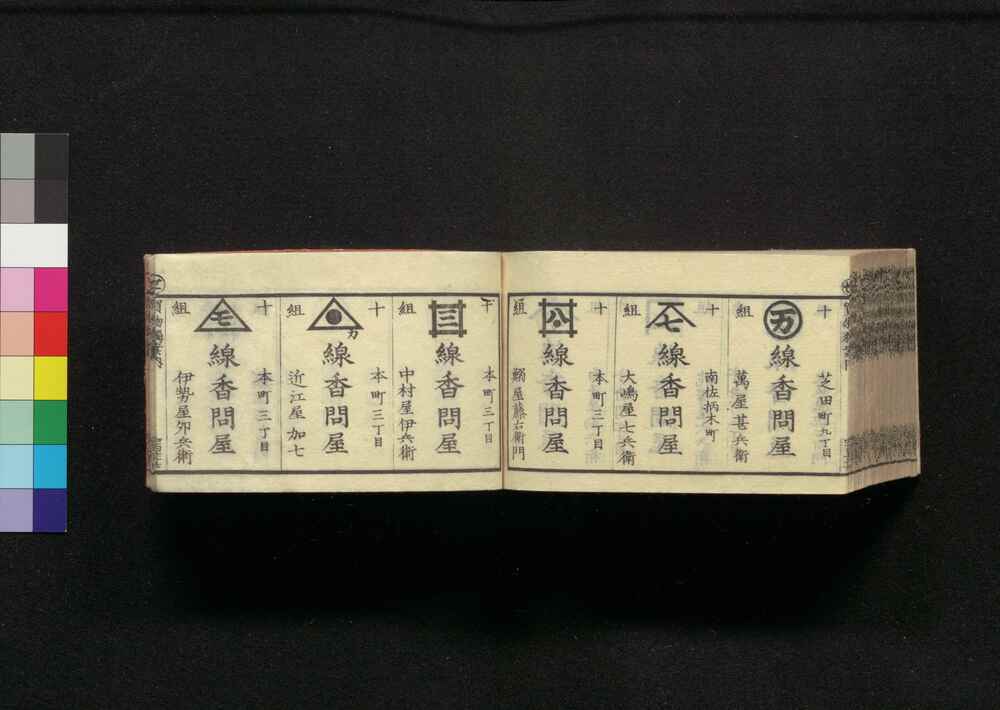 十組
芝田町九丁目
万
線香問屋
萬屋甚兵衛
十組
南佐柄木町
七
線香問屋
大嶋屋七兵衛
十組
本町三丁目
公
線香問屋
屋藤右衛門
十組
本町三丁目
三
線香問屋
中村屋伊兵衛
十組
本町三丁目
カ
線香問屋
近江屋加七
十組
本町三丁目
線香問屋
伊勢屋卯兵衛